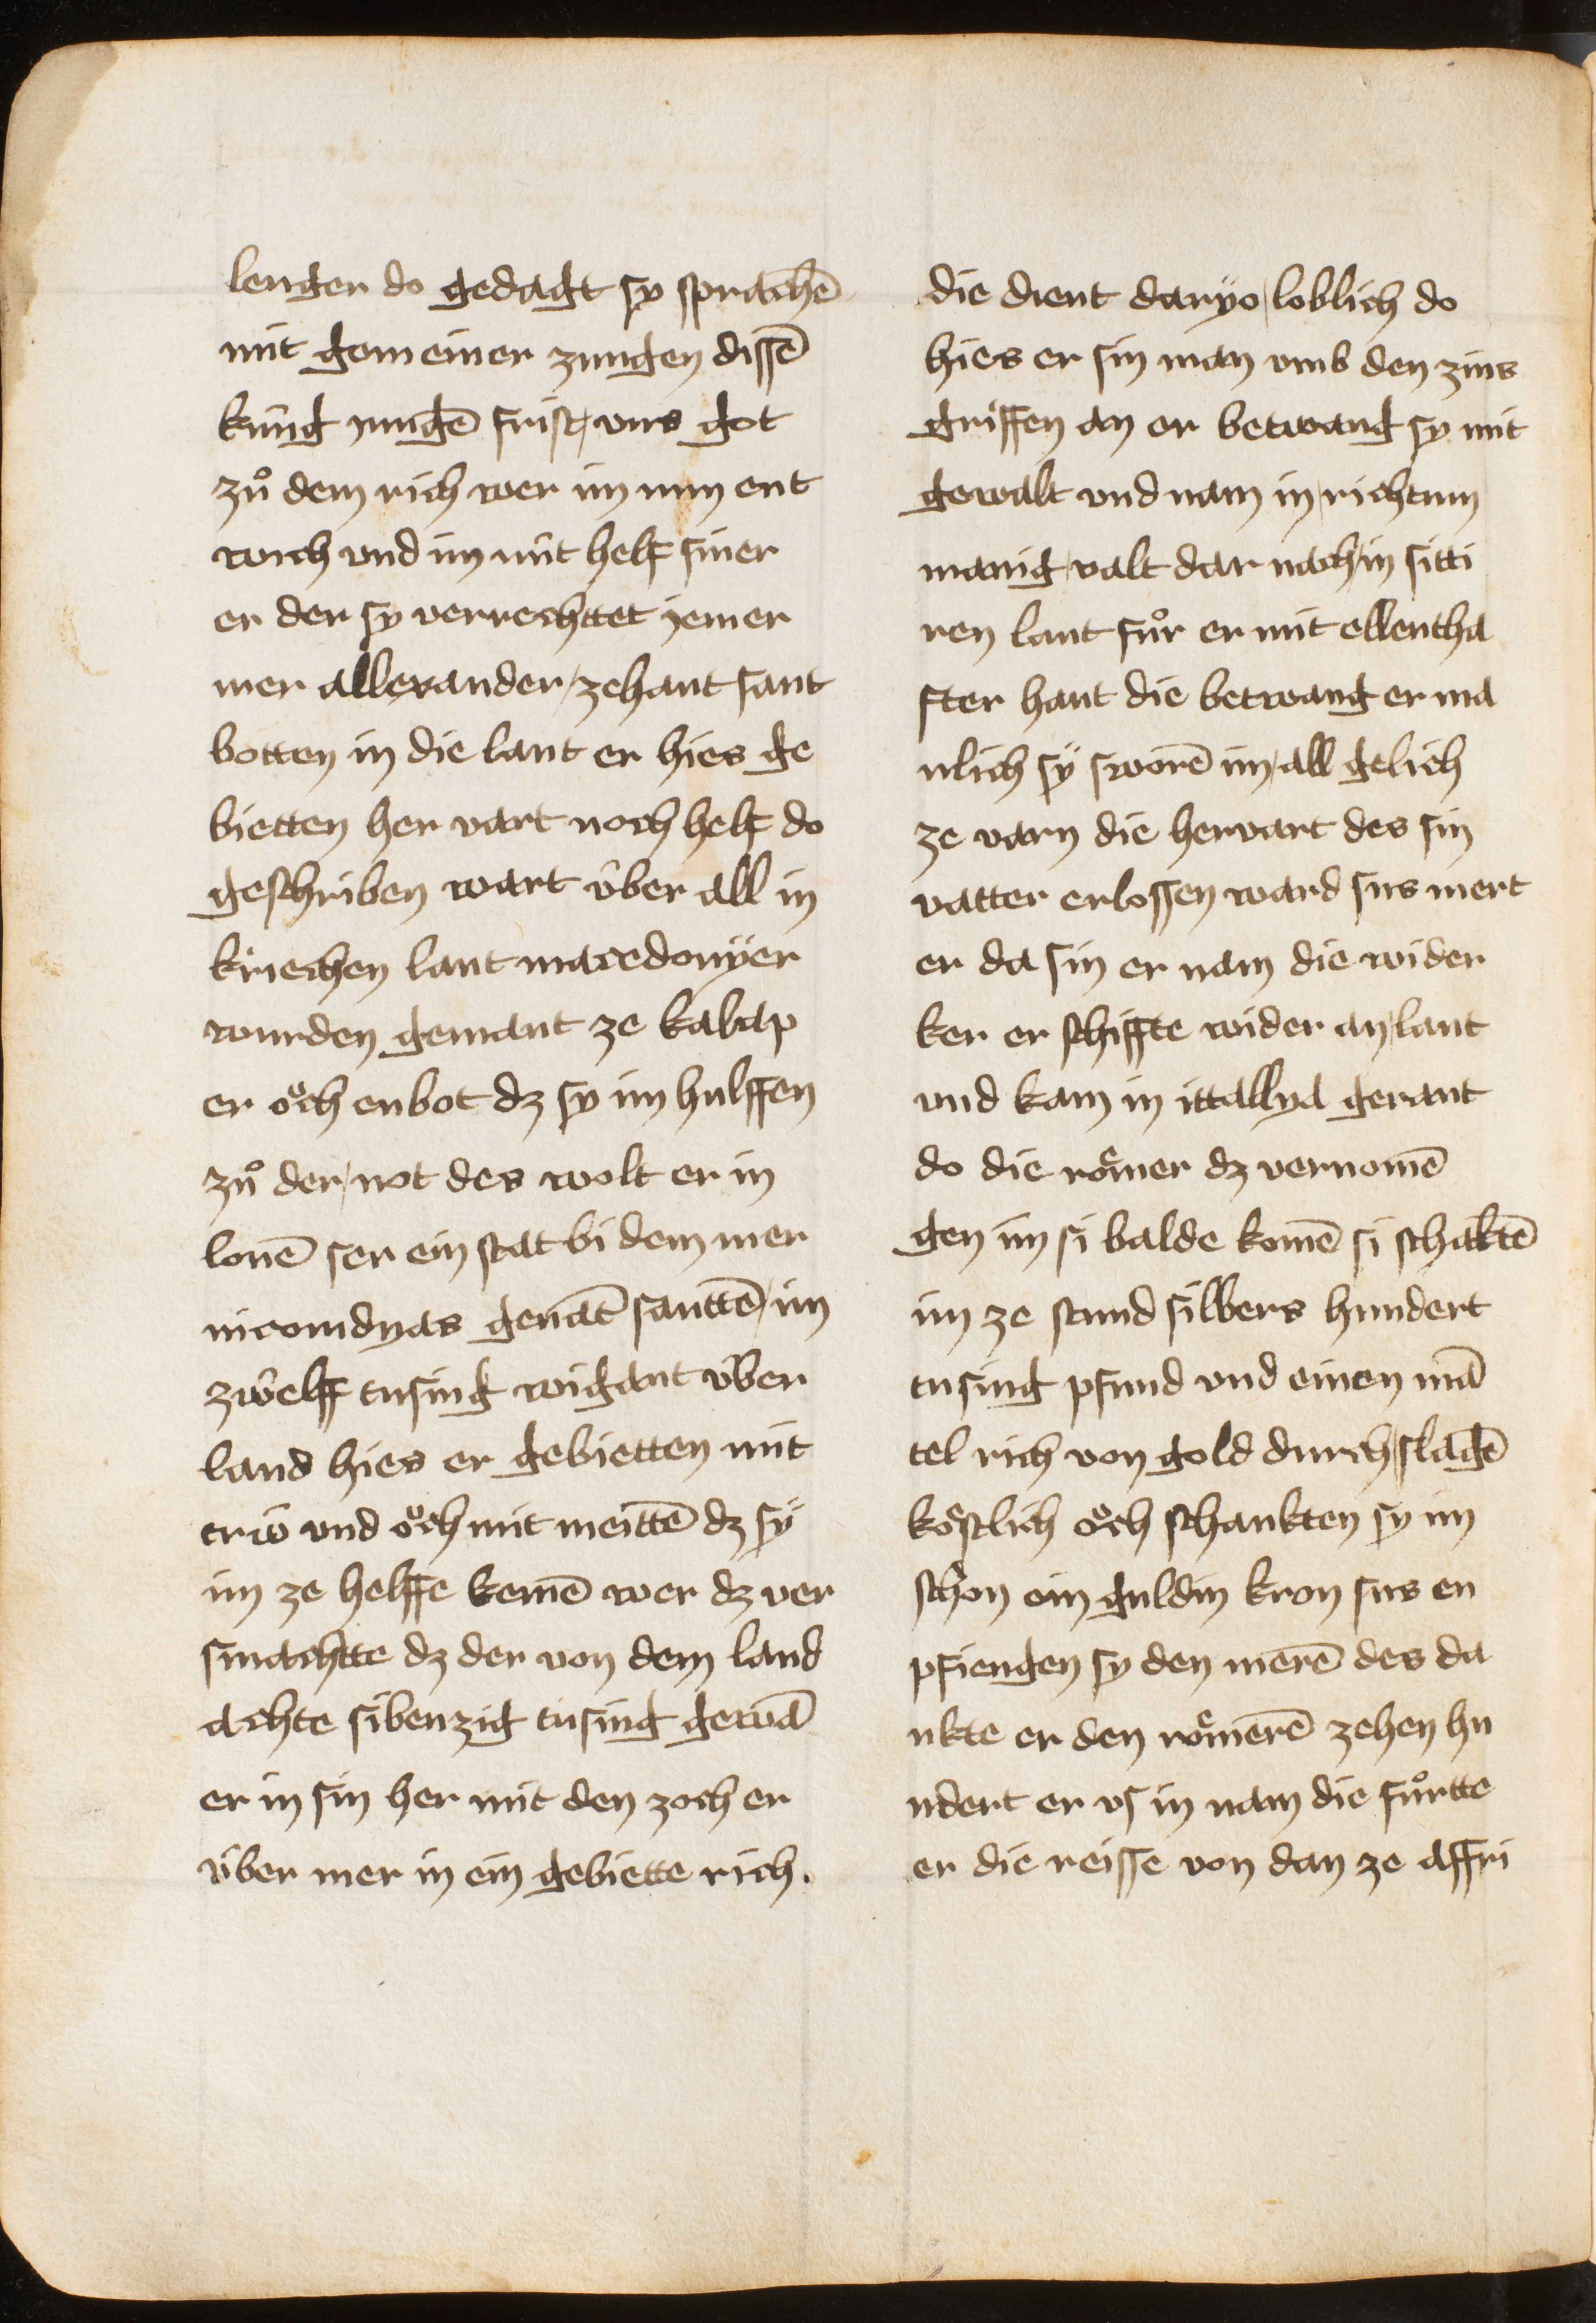 lenger do gedagt sy sprachē
mit gemeiner zungen dissē
kúng jungē frist vns got
zuͦ dem rich wer im nun ent
wich vnd im nút helf siner
er der sy verrechttet jemer
mer allexander zehant sant
botten in die lant er hies ge
bietten her vart noch helf do
geschriben wart úber all in
kriechen lant macedonÿer
wurden gemant ze kalap
er oͤch enbot dz sy im hulffen
zuͦ der not des wolt er in
lonē ser ein stat bi dem mer
nicomdyas genāt santtē im
zwelff tusing wigant úber
land hies er gebietten mit
triẃ vnd oͤch mit meittē dz sÿ
im ze helffe kemē wer dz ver
smachtte dz der von dem land
achte sibenzig túsing gewā
er in sin her mit den zoch er
úber mer in ein gebiette rich.
die dient darÿo loblich do
hies er sin man vmb den zins
griffen an er betwang sy mit
gewalt vnd nam in richtum
manig valt dar nach in sitti
ren lant fuͦr er mit ellentha
fter hant die betwang er ma
nlich sÿ sworē im all gelich
ze varn die hervart des sin
vatter erlossen ward sus mert
er da sin er nam die wider
ker er schiffte wider an lant
vnd kam in ittallya gerant
do die roͤmer dz vernomē
gen im si balde komē si schaktē
im ze stund silbers hundert
tusing pfund vnd einen mā
tel rich von gold durch slagē
koͤstlich oͤch schankten sy im
schon ein guldin kron sus en
pfiengen sy den merē des da
nkte er den roͤmerē zehen hu
ndert er vs in nam die fuͦrtte
er die reisse von dan ze affri